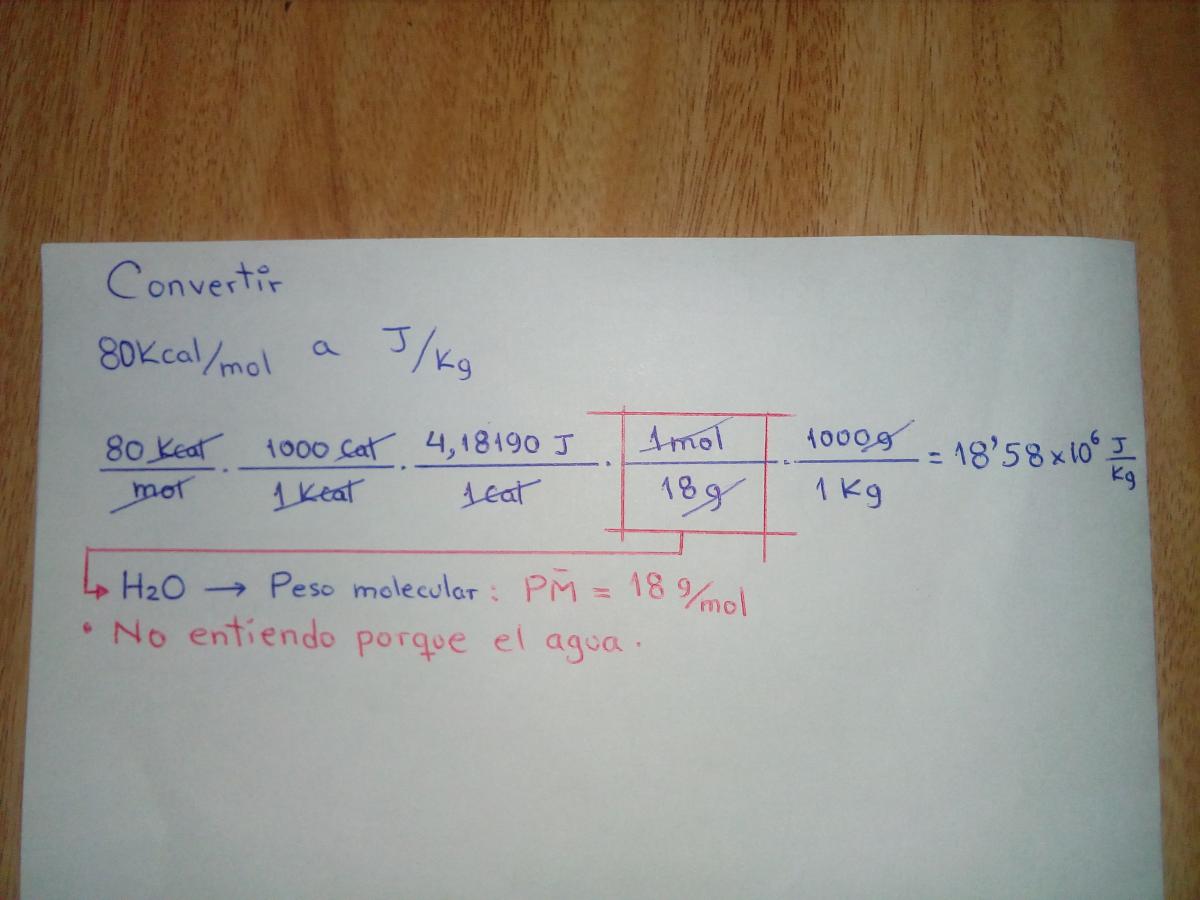 Convertir
80Kcal/mol a J/Kg
80 Kcal/mol · 1000 cal/1 Kcal · 4,18190 J/1 cal · 1 mol/18 g · 1000 g/1 Kg = 18'58 x 10⁶ J/Kg
H2O → Peso molecular: PM̄ = 18 g/mol
• No entiendo porque el agua.